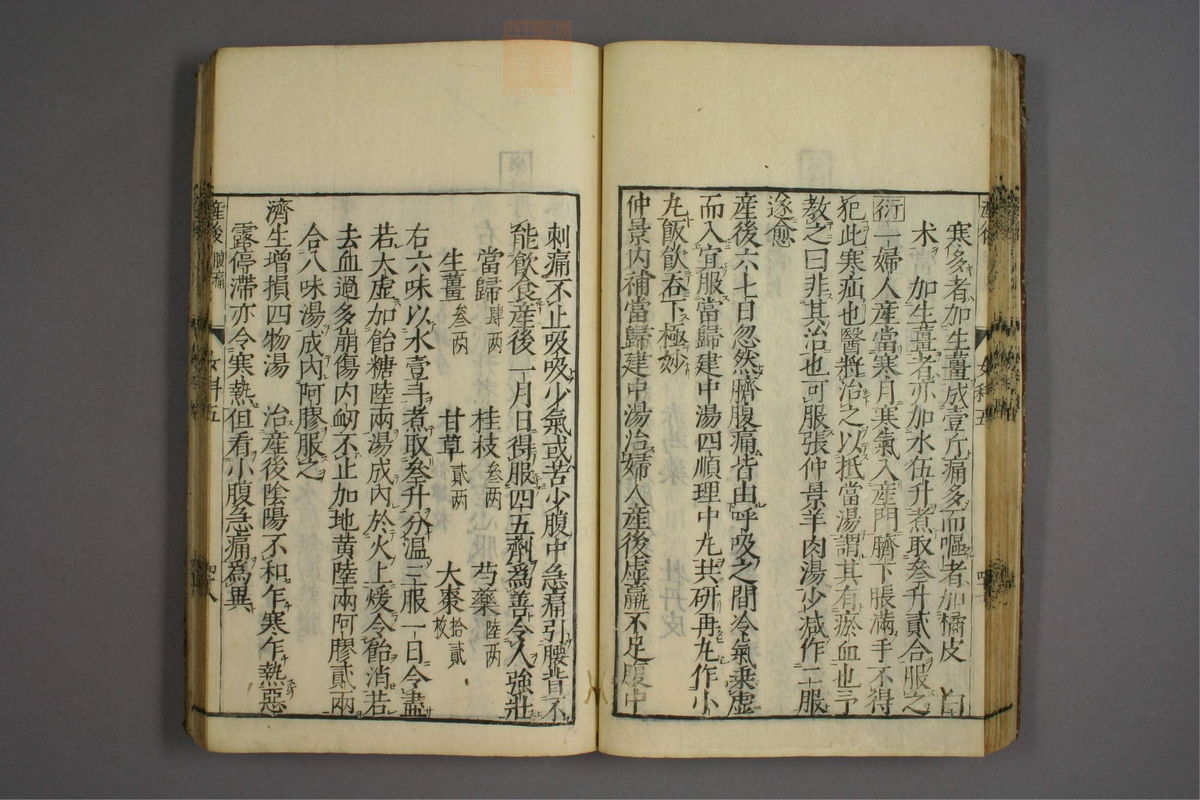 寒多者加生薑成壹斤痛多而嘔者加橘皮白
术加生薑者亦加水伍升煮取叁升貳合服之
衍一婦人產當寒月寒氣入產門臍下脹滿手不得
犯此寒疝也醫將治之以抵當湯謂其有瘀血也予
教之曰非其治也可服張仲景羊肉湯少減作二服
遂愈
產後六七日忽然臍腹痛皆由呼吸之間冷氣乗虛
而入宜服當歸建中湯四順理中丸共研再丸作小
丸飯飲吞下極妙
仲景内補當歸建中湯治婦人產後虛羸不足腹中
產後
女科五
刺痛不止吸吸少氣或苦少腹中急痛引腰背不
能飲食產後一月日得服四五劑為善令人強壯
當歸肆两 桂枝叁两 芍藥陸两
生薑叁两 甘草貳两 大棗拾貳枚
右六味以水壹斗煮取叁升分温三服一日令盡
若大虛加飴糖陸兩湯成内於火上煖令飴消若
去血過多崩傷内衂不止加地黄陸兩阿膠貳兩
合八味湯成内阿膠服之
濟生增損四物湯 治產後陰陽不和乍寒乍熱惡
露停滯亦令寒熱但看小腹急痛為異
產後腹痛
女科五
四八